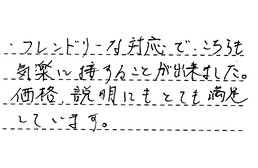 ・フレンドリーな対応で、こちらも
気楽に接することが出来ました。
価格、説明にもとても満足
しています。